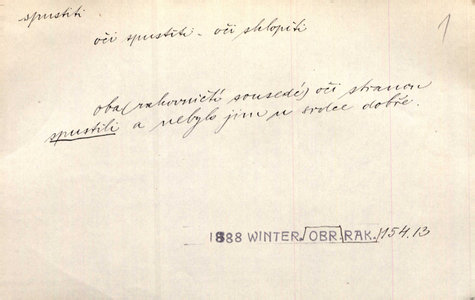 spustiti
1
oči spustiti - oči sklopiti
oba (rakovničtí sousedé) oči stranou
spustili a nebylo jim u srdce dobře.
1888 WINTER. OBR. RAK. 154.13